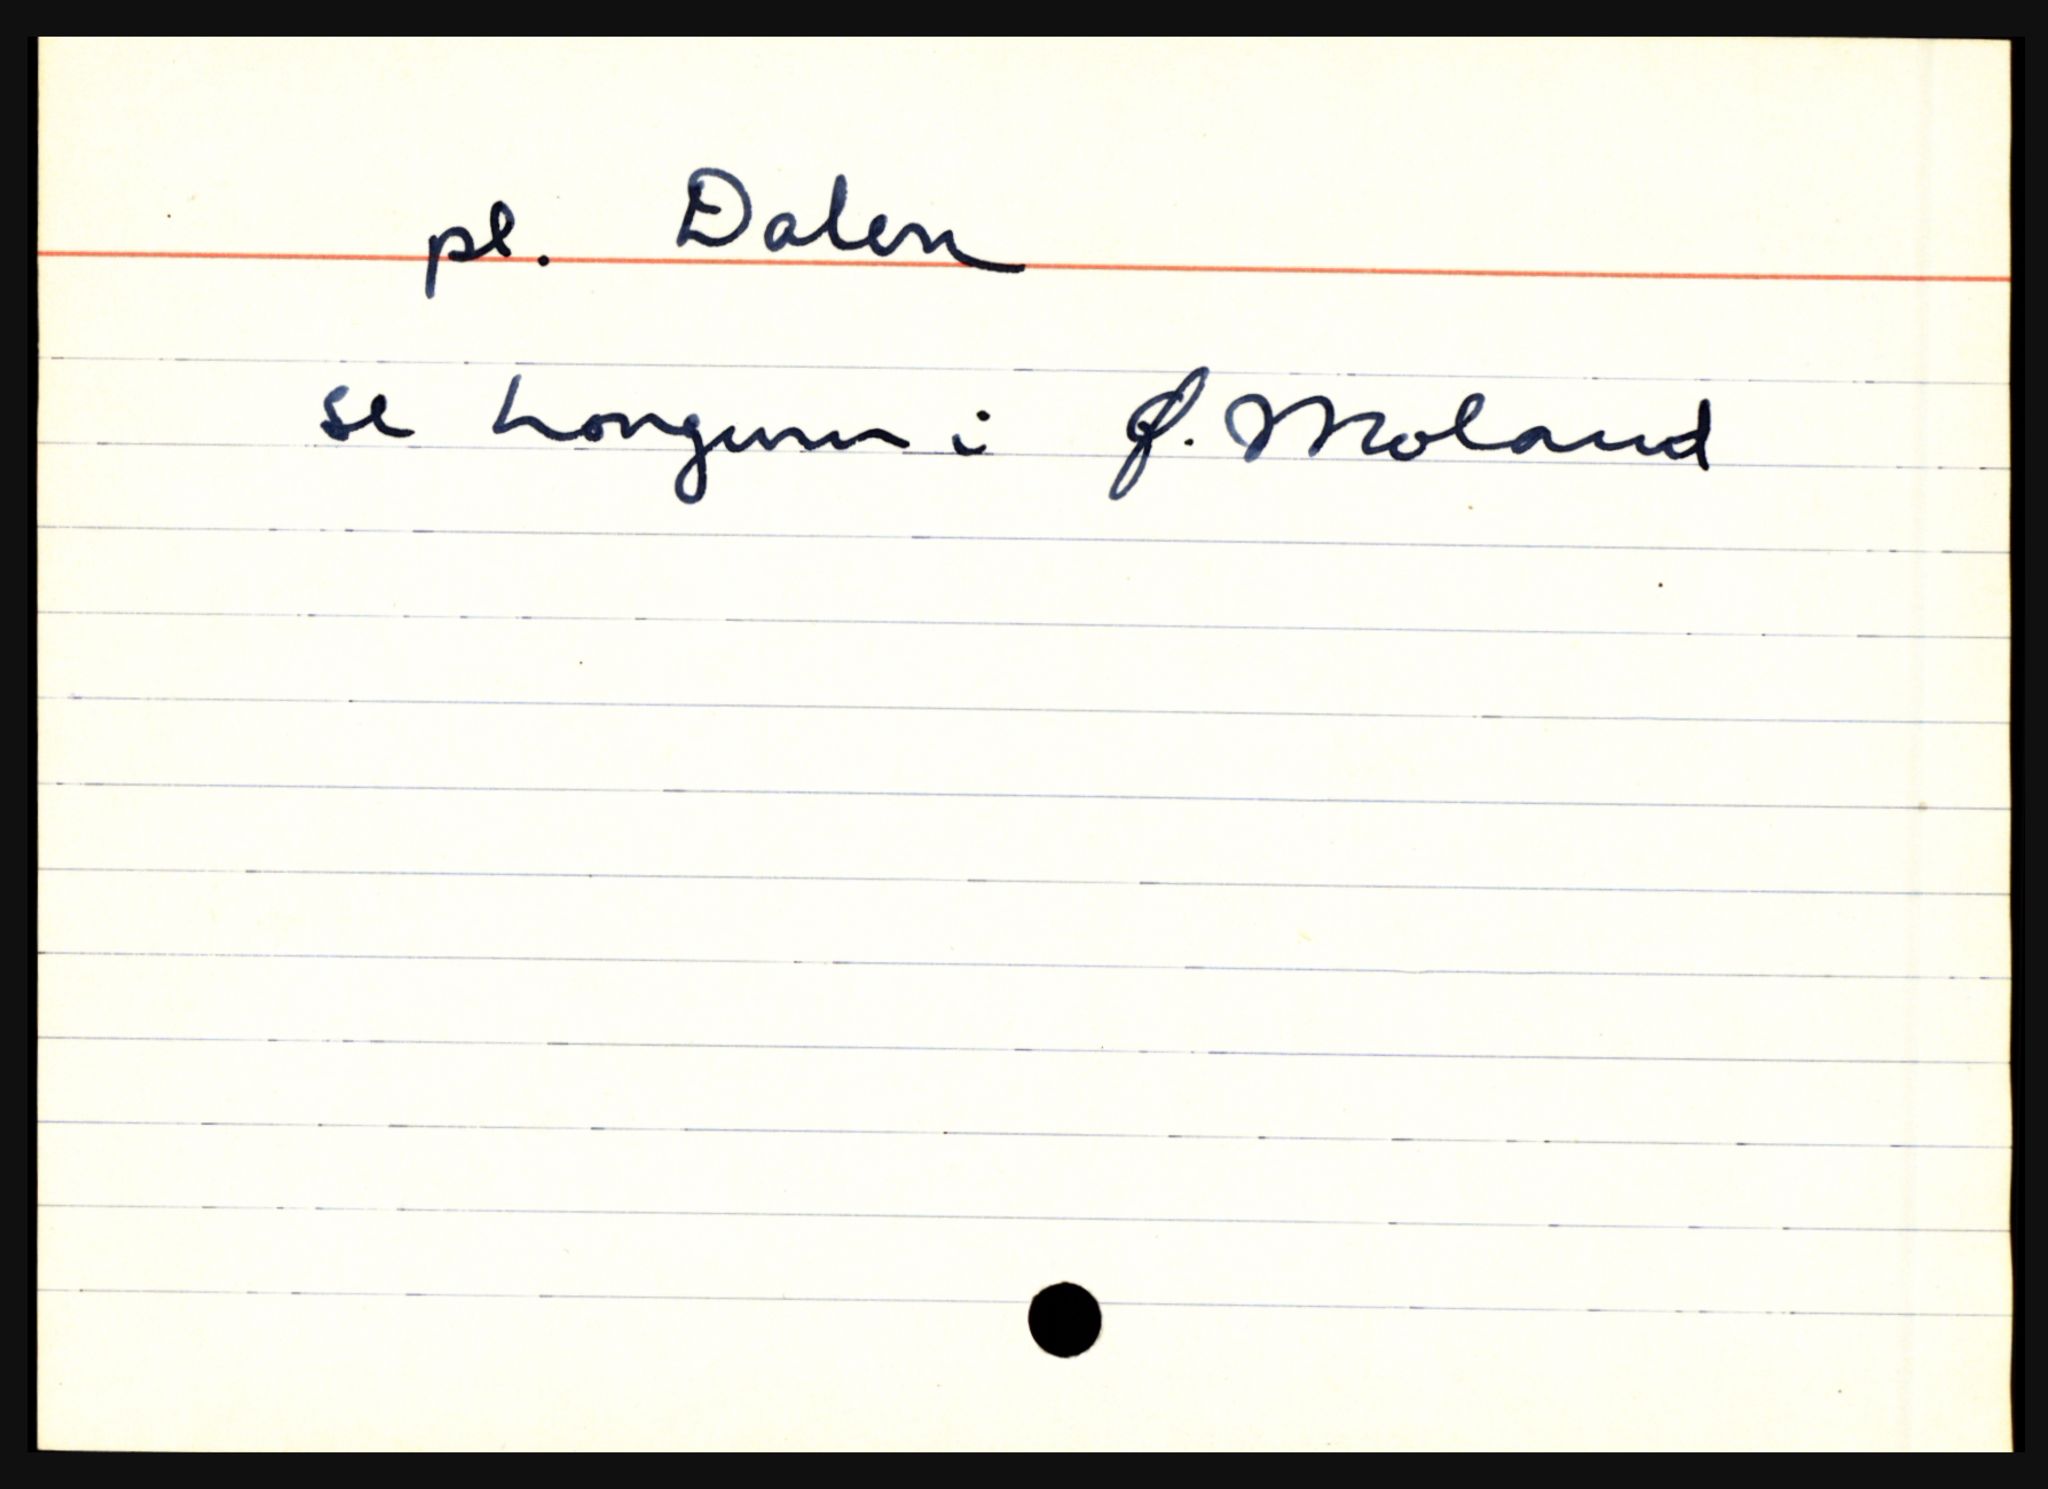 pl. Dalen
se Longum i Ø. Moland